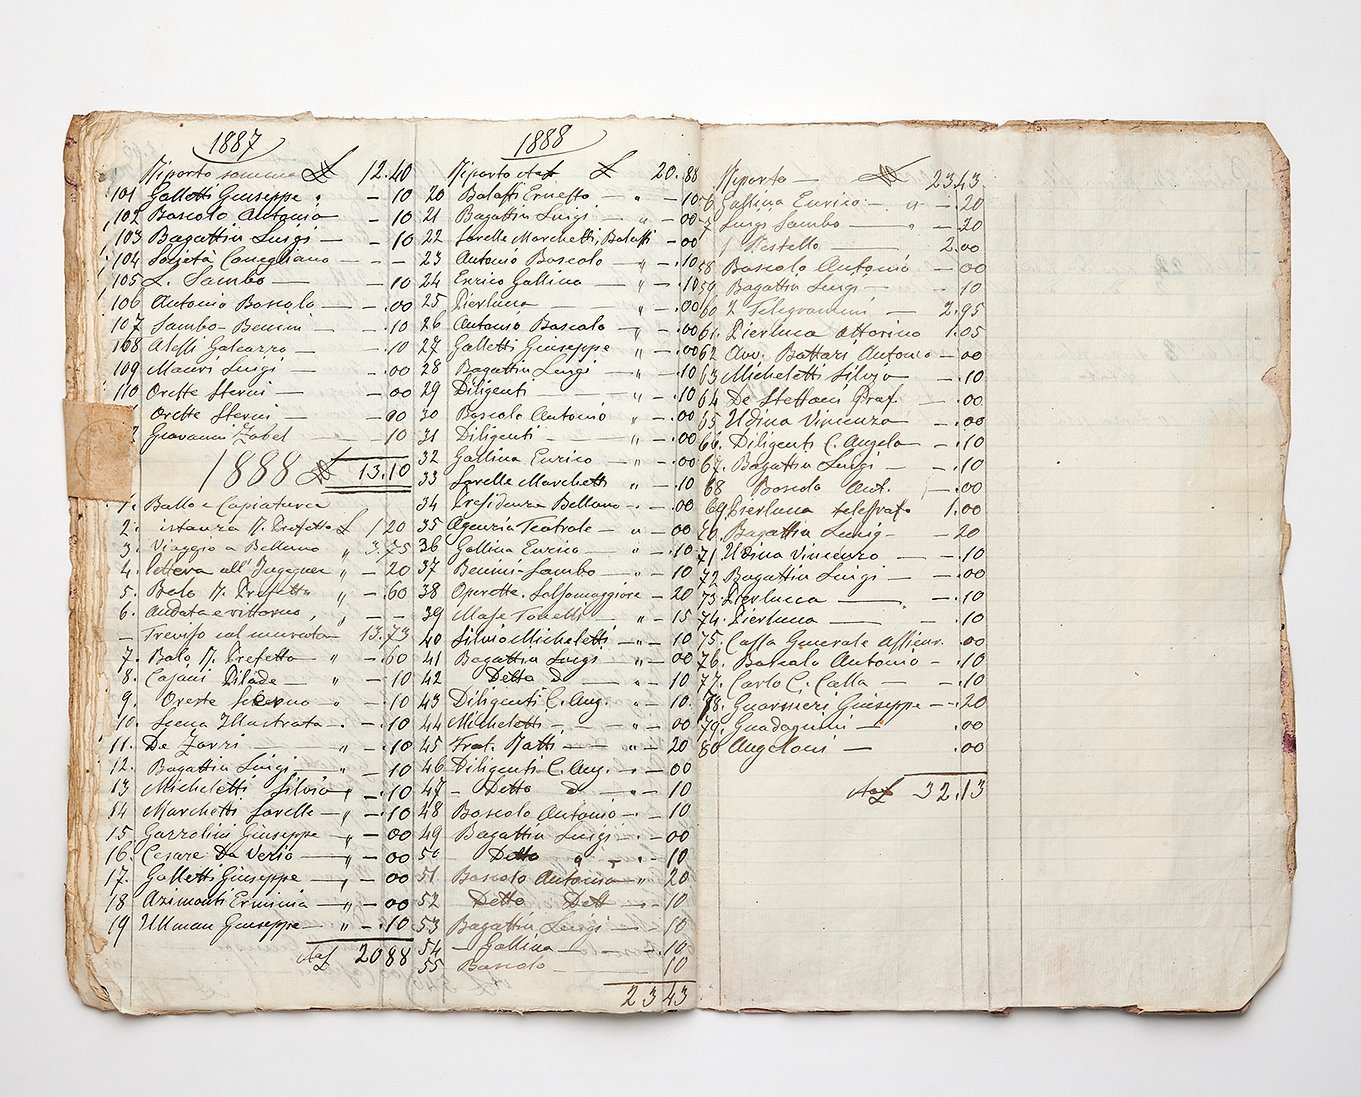 1887
Riporto somma £ 12.40
101 Galletti Giuseppe " - 10
102 Boscolo Antonio - 10
103 Bagattin Luigi - 10
104 Società Conegliano - -
105 L. Sambo - 10
106 Antonio Boscolo - .00
107 Sambo-Benini - .10
108 Galeazzo - .10
109 Mauri Luigi - 00
110 Oreste Sterni - 00
Oreste Sterni - 00
Giovanni Zobel - 10
13.10
1888
1. Bollo e Copiatura
2. istanza R. Prefetto £ 1.20
3. Viaggio a Belluno " 3.75
4. lettera all'Ingegner " - 20
5. Bolo R. Prefetto " - 60
6. Andata e vittorio " - -
- Treviso col murato 13.73
7. Bolo R. Prefetto " - .60
8. Casani Pilade " - 10
9. Oreste " - 10
10. Scena Illustrata . - .10
11. De Zorzi " - .10
12. Bagattin Luigi " - 10
13 Micheletti Silvio " - .10
14 Marchetti Sorelle " - .10
15 Gazzolini Giuseppe " - 00
16. Cesare Da Verio " - 00
17. Galletti Giuseppe " - 00
18 Azimonti Erminia " - 00
19 Ullman Giuseppe " - .10
2088
1888
Riporto £ 20.88
20 Balatti Ernesto " - 10
21 Bagattin Luigi " - 00
22 Sorelle Marchetti, Balatti - 00
23 Antonio Boscolo " - .10
24 Enrico Gallina " - .10
25 Pierluca " - .00
26 Antonio Boscolo " - .00
27 Galletti Giuseppe " - .00
28 Bagattin Luigi " - .10
29 Diligenti " - .10
30 Boscolo Antonio " - .00
31 Diligenti " - .00
32 Gallina Enrico " - .00
33 Sorelle Marchetti " - .10
34 Presidenza Belluno - . - 00
35 Agenzia Teatrale - " - 00
36 Gallina Enrico " - .10
37 Benini-Sambo " - 10
38 Operette. Salsomaggiore - 20
39 Tonelli " - 15
40 Silvio Micheletti " - 10
41 Bagattin Luigi " - 00
42 Detto do " - 10
43 Diligenti C. Ang. " - 10.
44 Micheletti " - 00
45 Frat. Ratti " - 20
46 Diligenti C. Ang. " - 00
47 - Detto d " - 10
48 Boscolo Antonio . - 10
49 Bagattin Luigi . - 00
50 Detto " . - 10
51 Boscolo Antonio " - 20
52 Detto Dett - 10
53 Bagattin Luigi - 10
54 - Gallina - .10
55 Boscolo - 10
2343
Riporto - 2343.
56 Gallina Enrico " - 20
57 Luigi Sambo " - 20
1 Pestello 2.00
58 Boscolo Antonio - 00
59 Bagattin Luigi - 10
60 2 Telegrammi - 2.95
61. Pierluca Vittorino 1.05
62 Avv. Bottari Antonio - 00
63 Micheletti Silvio - .10
64 De Stefani Prof. - .00
65 Udina Vincenzo - .00
66. Diligenti C. Angelo - .10
67. Bagattin Luigi - .10
68 Boscolo Ant. - .00
69 Pierluca telegrafo 1.00
70. Bagattin Luigi - 20
71. Udina Vincenzo - .10
72 Bagattin Luigi - .00
73 Pierluca - .10
74. Pierluca - .10
75. Cassa Generale Assicur. .00
76. Boscolo Antonio - .10
77. Carlo C. Calla - .10
78. Guarnieri Giuseppe - .20
79. Guadagnini - .00
80 Angeloni - .00
32.13